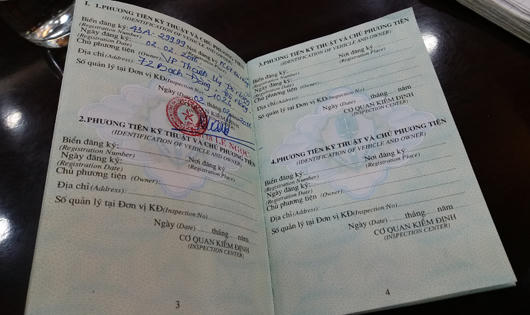 I. 1.PHƯƠNG TIỆN KỸ THUẬT VÀ CHỦ PHƯƠNG TIỆN
(IDENTIFICATION OF VEHICLE AND OWNER)
Biển đăng ký: 43A-29999
(Registration Number)
Ngày đăng ký:
(Registration Date)
Chủ phương tiện (Owner): VP Thành
Địa chỉ (Address): 72 Bạch Đằng
Số quản lý tại Đơn vị KĐ
Ngày (Date)
2.PHƯƠNG TIỆN KỸ THUẬT VÀ CHỦ PHƯƠNG TIỆN
(IDENTIFICATION OF VEHICLE AND OWNER)
Biển đăng ký: Nơi đăng ký:
(Registration Number) (Registration Place)
Ngày đăng ký:
(Registration Date)
Chủ phương tiện (Owner):
Địa chỉ (Address):
Số quản lý tại Đơn vị KĐ(Inspection No)
Ngày (Date) tháng năm
CƠ QUAN KIỂM ĐỊNH
(INSPECTION CENTER)
3
3.PHƯƠNG TIỆN KỸ THUẬT VÀ CHỦ PHƯƠNG TIỆN
(IDENTIFICATION OF VEHICLE AND OWNER)
Biển đăng ký: Nơi đăng ký:
(Registration Number) (Registration Place)
Ngày đăng ký:
(Registration Date)
Chủ phương tiện (Owner):
Địa chỉ (Address):
Số quản lý tại Đơn vị KĐ(Inspection No)
Ngày (Date) tháng năm
CƠ QUAN KIỂM ĐỊNH
(INSPECTION CENTER)
4.PHƯƠNG TIỆN KỸ THUẬT VÀ CHỦ PHƯƠNG TIỆN
(IDENTIFICATION OF VEHICLE AND OWNER)
Biển đăng ký: Nơi đăng ký:
(Registration Number) (Registration Place)
Ngày đăng ký:
(Registration Date)
Chủ phương tiện (Owner):
Địa chỉ (Address):
Số quản lý tại Đơn vị KĐ(Inspection No)
Ngày (Date) tháng năm
CƠ QUAN KIỂM ĐỊNH
(INSPECTION CENTER)
4